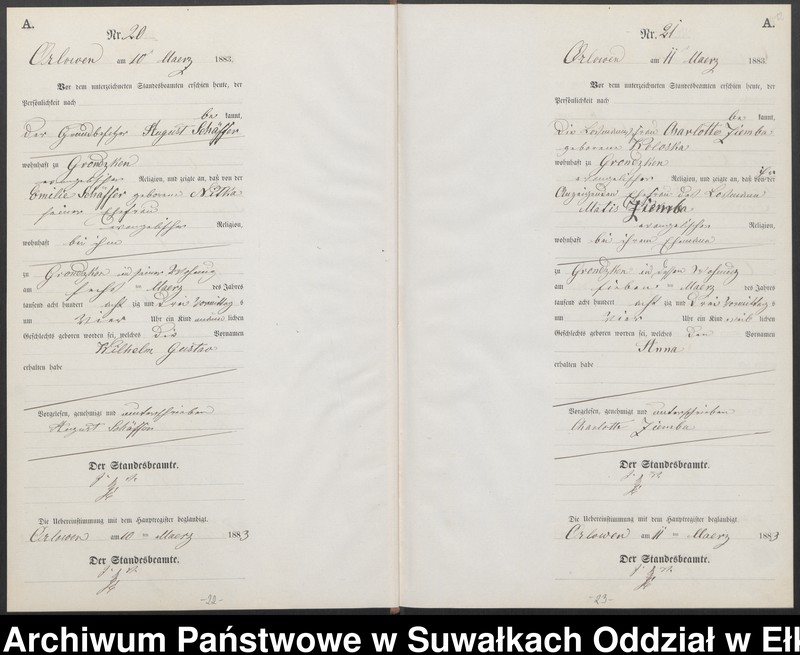 A.
Nr. 20
Orlowen am 10ᵗ Maerz 1883.
Vor dem unterzeichneten Standesbeamten erschien heute, der
Persönlichkeit nach
be kannt,
der Grundbesitzer August Schäffer
wohnhaft zu Grondzken
evangelischer Religion, und zeigte an, daß von der
Emilie Schäffer geborene Nitka
seiner Ehefrau
evangelischer Religion,
wohnhaft bei ihm
zu Grondzken in seiner Wohnung
am ten Maerz des Jahres
tausend acht hundert acht zig und drei Vormittags
um vier Uhr ein Kind männ lichen
Geschlechts geboren worden sei, welches die Vornamen
Wilhelm Gustav
erhalten habe
Vorgelesen, genehmigt und unterschrieben
August Schäffer
Der Standesbeamte.
Die Uebereinstimmung mit dem Hauptregister beglaubigt.
Orlowen am 10 ten Maerz 1883
Der Standesbeamte.
-22-
A.
Nr. 21
Orlowen am 11ᵗ Maerz 1883
Vor dem unterzeichneten Standesbeamten erschien heute, der
Persönlichkeit nach
be kannt,
die Losmannsfrau Charlotte Ziemba
geborene Koloska
wohnhaft zu Grondzken
evangelischer Religion, und zeigte an, daß von der
Ehefrau des Losmann
Matis Ziemba
evangelischer Religion,
wohnhaft bei ihrem Ehemann
zu Grondzken in dessen Wohnung
am sieben ten Maerz des Jahres
tausend acht hundert acht zig und drei Vormittags
um vier Uhr ein Kind weib lichen
Geschlechts geboren worden sei, welches den Vornamen
Anna
erhalten habe
Vorgelesen, genehmigt und unterschrieben
Charlotte Ziemba
Der Standesbeamte.
Die Uebereinstimmung mit dem Hauptregister beglaubigt.
Orlowen am 11 ten Maerz 1883
Der Standesbeamte.
-23-
Archiwum Państwowe w Suwałkach Oddział w Ełk